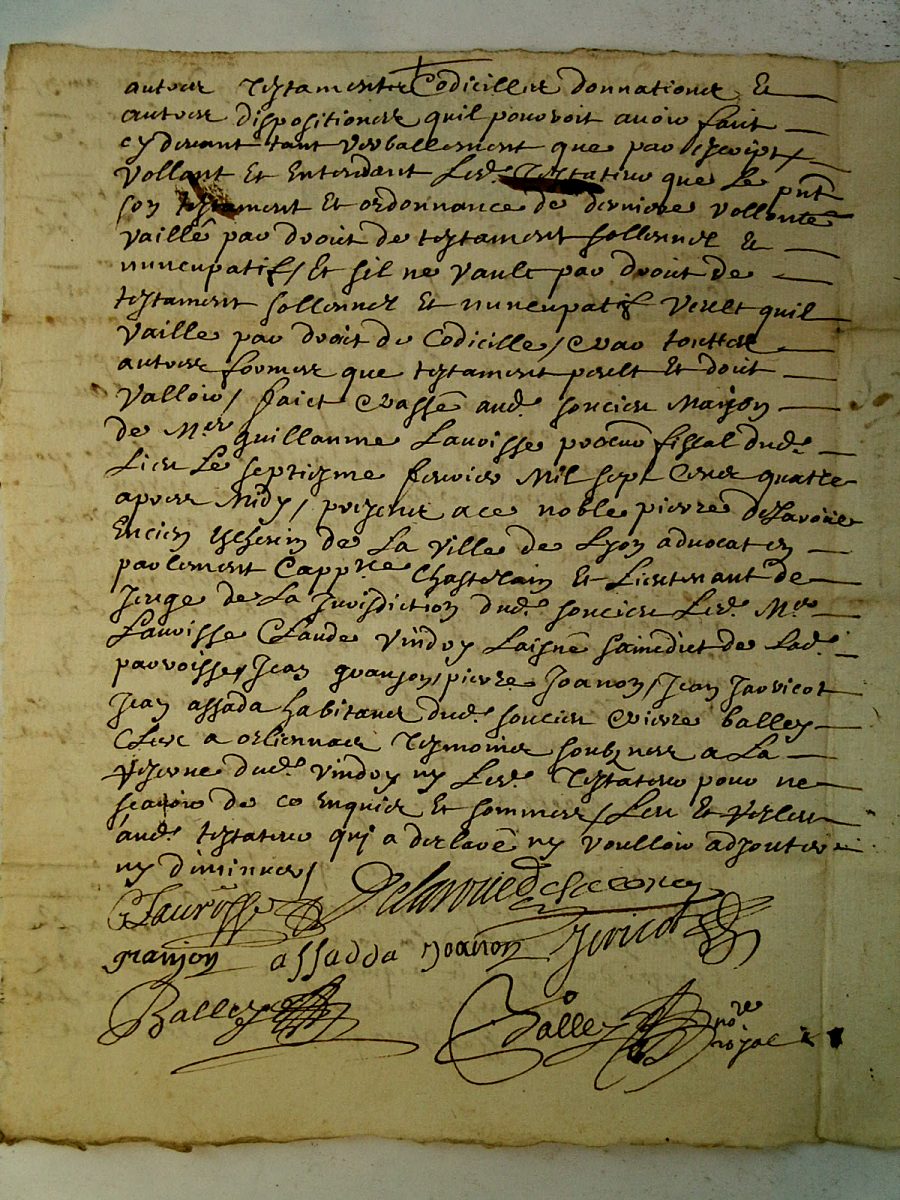 autres Testamentz Codicilles donnations Et
autres dispositions quil pourroit avoir faict
cy devant tant verballement que par escript /
Vollant Et Entendant Led. Testateur que le pnt
son testament Et ordonnance de derniere vollonté
vaille par droict de testament sollennel Et
nuncupatif / Et sil ne vault par droict de
testament sollennel Et nuncupatif veult quil
vaille par droict de Codicille / Et par touttes
autres formes que testament peult Et doict
valloir / faict Et passé aud. soucieu Maison
de Mre guillaume Lavoisse procur fiscal dud.
Lieu Le septiesme fevrier Mil sept Cens quatre
apres Midy / presens a ce noble pierre delavoue
Encien Eschevin de La ville de Lyon advocat en
parlement Cappne Chastelain Et Lieutenant de
Juge de La Jurisdiction dud. soucieu Led. Mre
Lavoisse Claude Vindry Laisné saindict de Lad.
parroisse / Jean granjon / pierre Joanon / Jean Jarricot
Jean assada habitans dud. soucieu Et pierre balley
Clerc a orliennas Tesmoins soubznes a La
reserve dud. Vindry ny Led. Testateur pour ne
scavoir de ce Enquis Et sommes / Leu Et releu
aud. testateur qui a declaré ny voulloir adjouter
ny diminuer /
Lavoisse Delavoue
granjon assadda Joanon Jaricot
Balley Balley nore royal